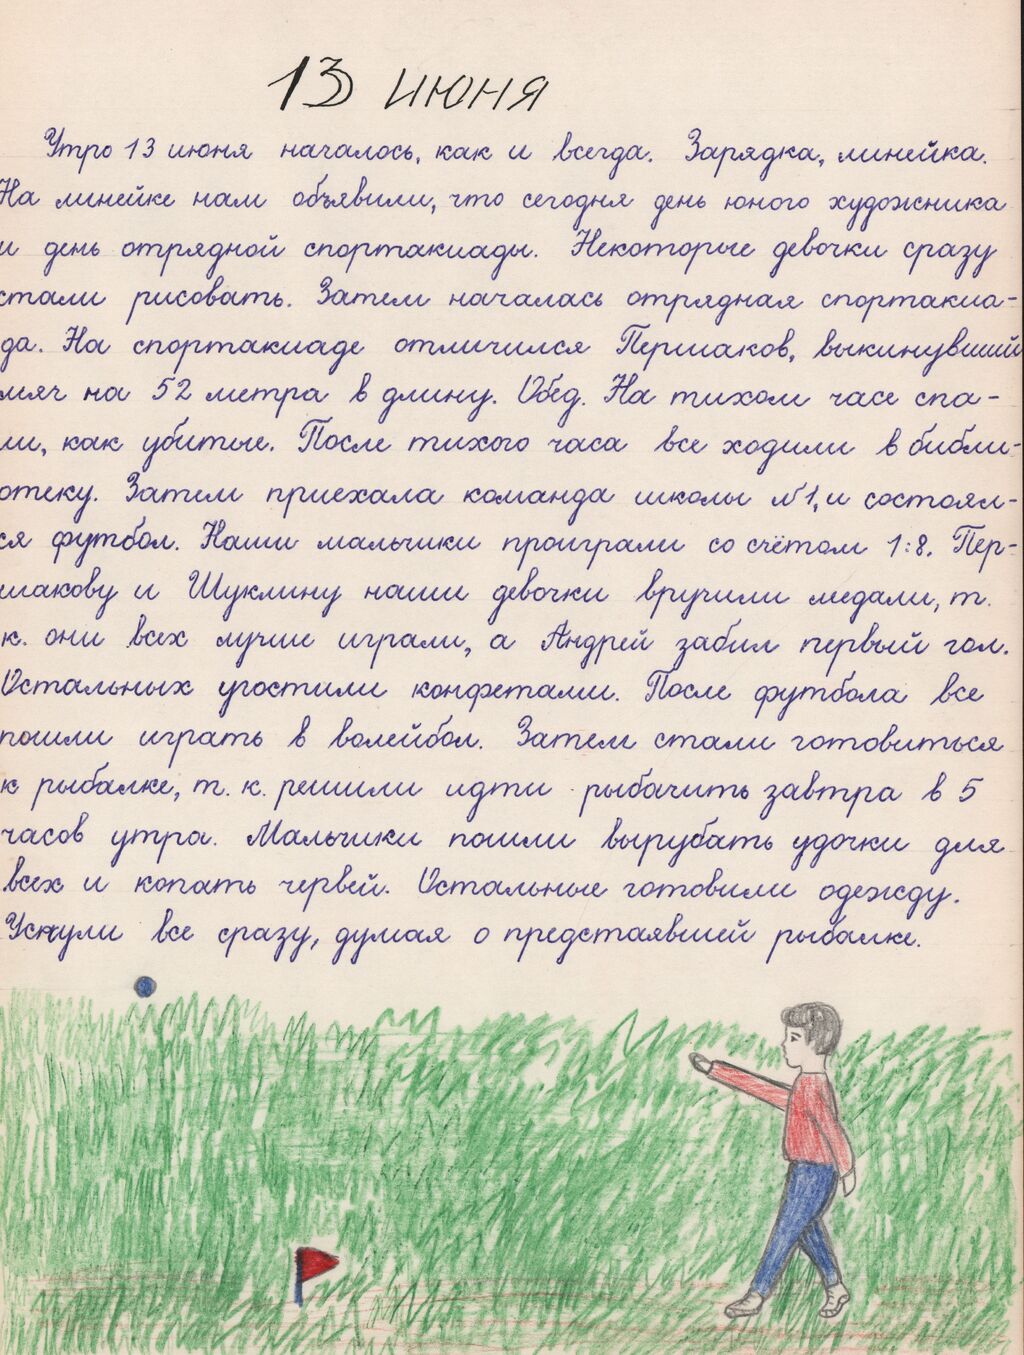 13 июня
Утро 13 июня началось, как и всегда. Зарядка, линейка.
На линейке нам объявили, что сегодня день юного художника
и день отрядной спортакиады. Некоторые девочки сразу
стали рисовать. Затем началась отрядная спортакиа-
да. На спортакиаде отличился Першаков, выкинувший
мяч на 52 метра в длину. Обед. На тихом часе спа-
ли, как убитые. После тихого часа все ходили в библи-
отеку. Затем приехала команда школы №1, и состоял-
ся футбол. Наши мальчики проиграли со счётом 1:8. Пер-
шакову и Шуклину наши девочки вручили медали, т.
к. они всех лучше играли, а Андрей забил первый гол.
Остальных угостили конфетами. После футбола все
пошли играть в волейбол. Затем стали готовиться
к рыбалке, т. к. решили идти рыбачить завтра в 5
часов утра. Мальчики пошли вырубать удочки для
всех и копать червей. Остальные готовили одежду.
Уснули все сразу, думая о предстаявшей рыбалке.